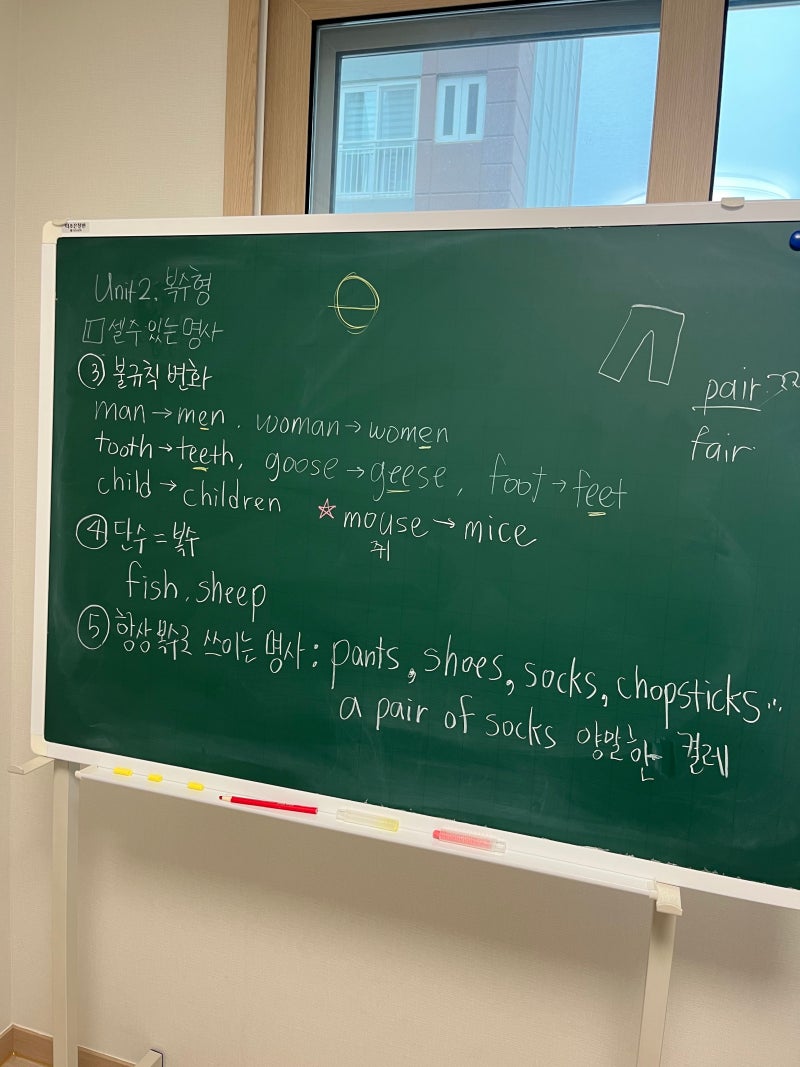 Unit 2. 복수형
□ 셀 수 있는 명사
③ 불규칙 변화
man → men. woman → women
tooth → teeth, goose → geese, foot → feet
child → children ☆ mouse → mice
쥐
④ 단수 = 복수
fish. sheep
⑤ 항상 복수로 쓰이는 명사: pants, shoes, socks, chopsticks...
a pair of socks 양말 한 켤레
pair.
fair.